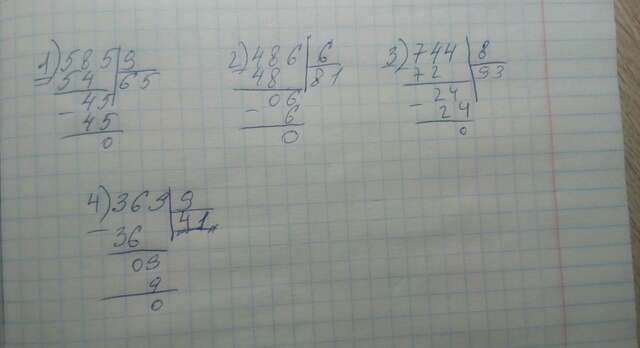 1) 585 9
- 54 65
- 45
45
0
2) 486 6
- 48 81
- 06
6
0
3) 744 8
- 72 93
- 24
24
0
4) 369 9
- 36 41
09
9
0